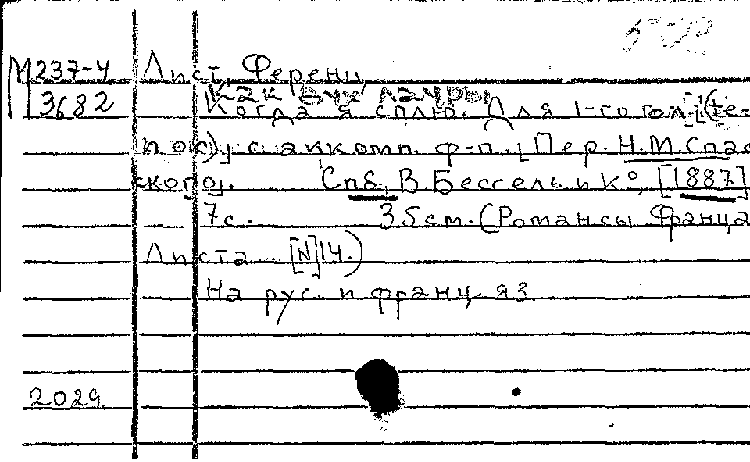 М 237-4 Лист, Ференц
3682 Когда я сплю. Для 1-го гол. [(те-
нос)] с аккомп. ф-п. [Пер. Н.М.Спас
ского]. Спб, В. Бессель и К°, [1887]
7 с. 35 см. (Романсы Франца
Листа [N] 14.)
На рус. и франц. яз.
2029.